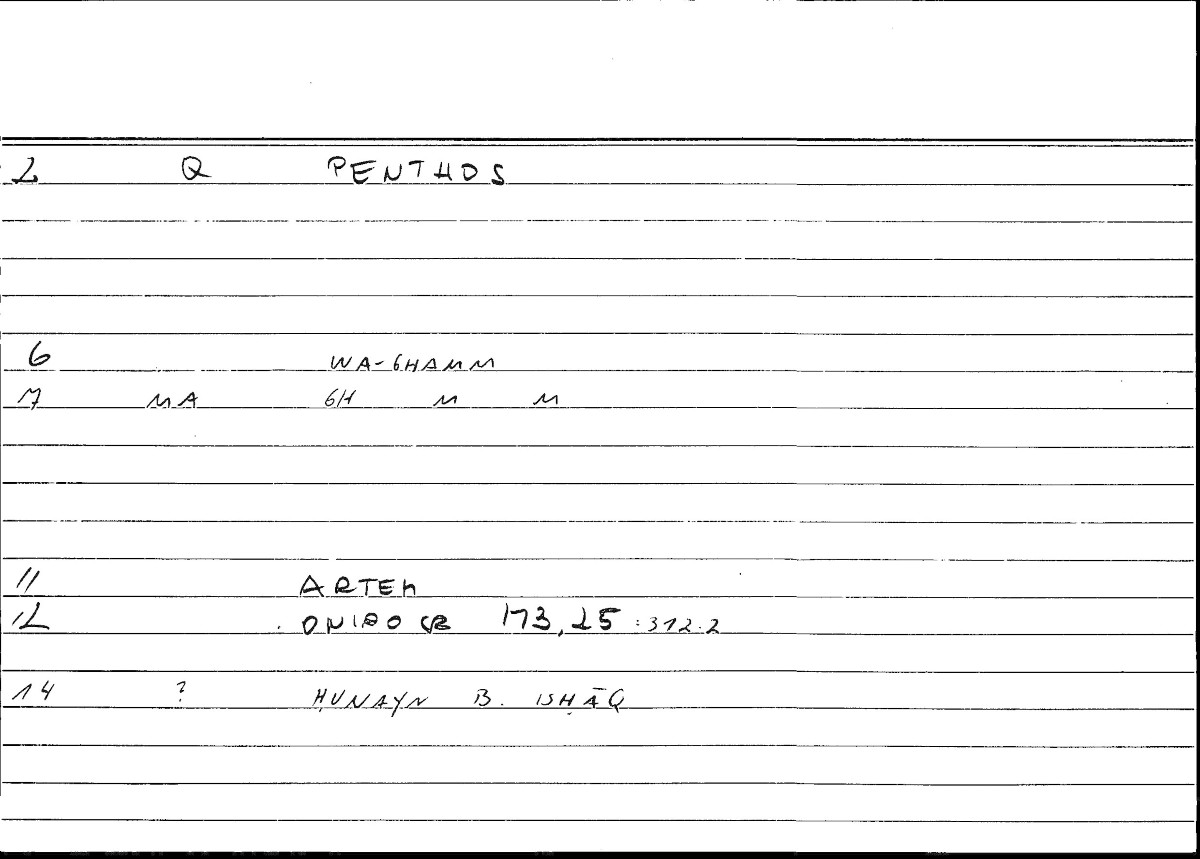 2 Q PENTHOS
6 WA-GHAMM
7 MA GH M M
11 ARTEM
12 ONIRO CR 173,25 :312.2
14 ? ḤUNAYN B. ISḤĀQ